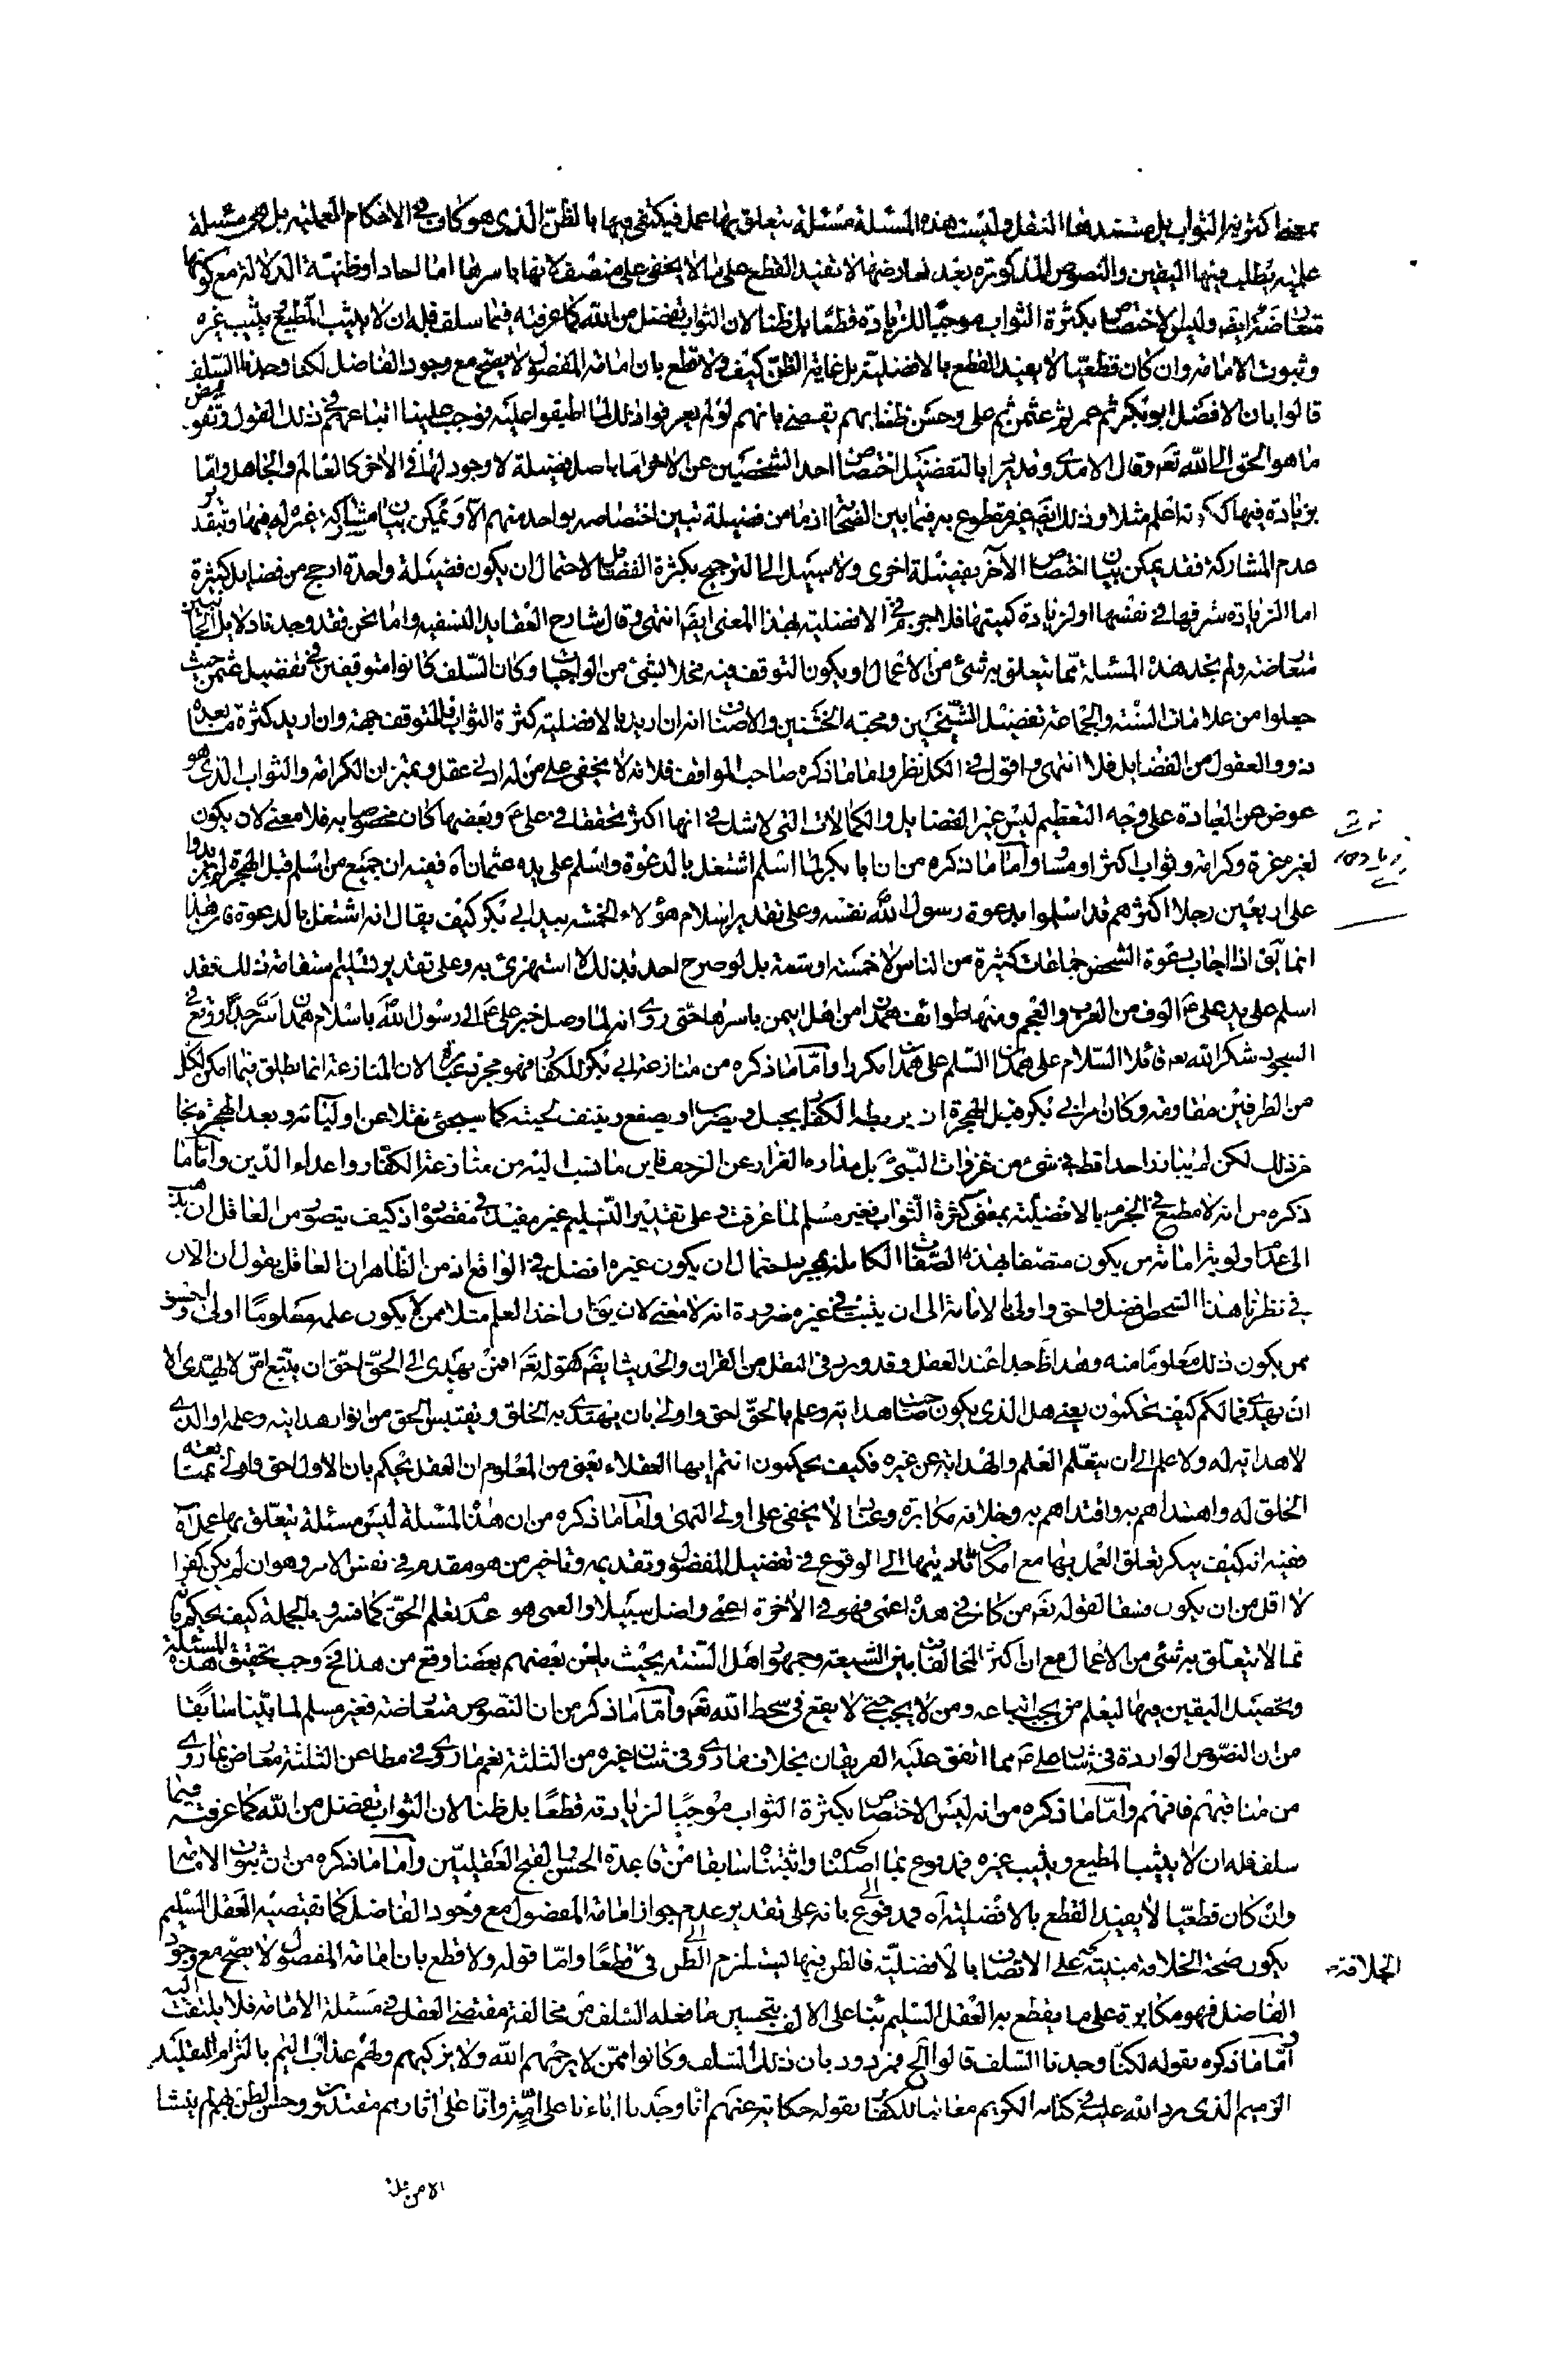 بمعنى اكثرية الثواب بل مستندها النقل وليست هذه المسئلة مسئلة يتعلق بها عمل فيكتفى فيها بالظن الذى هو كاف فى الاحكام العملية بل هى مسئلة
علمية يطلب فيها اليقين والنصوص المذكورة بعد تعارضها لا تفيد القطع على ما لا يخفى على منصف لانها باسرها اما احاد او ظنية الدلالة مع كونها
متعارضة ايضا وليس الاختصاص بكثرة الثواب موجبا للزيادة قطعا بل ظنا لان الثواب تفضل من الله كما عرفته فيما سلف فله ان لا يثيب المطيع ويثيب غيره
وثبوت الامامة وان كان قطعيا لا يفيد القطع بالافضلية بل غايته الظن كيف ولا قطع بان امامة المفضول لا يصح مع وجود الفاضل لكنا وجدنا السلف
قالوا بان الافضل ابو بكر ثم عمر ثم عثمن ثم على وحسن ظننا بهم يقتضى بانهم لو لم يعرفوا ذلك لما اطبقوا عليه فوجب علينا اتباعهم فى ذلك القول وتفويض
ما هو الحق الى الله تعه وقال الامدى وقد يراد بالتفضيل اختصاص احد الشخصين عن الاخر اما باصل فضيلة لا وجود لها فى الاخر كالعالم والجاهل واما
بزيادة فيها ككونه اعلم مثلا وذلك ايضا غير مقطوع به فيما بين الصحابة اذ ما من فضيلة تبين اختصاصه بواحد منهم الا ويمكن بيان مشاركة غيره له فيها وبتقدير
عدم المشاركة فقد يمكن بيان اختصاص الآخر بفضيلة اخرى ولا سبيل الى الترجيح بكثرة الفضايل لاحتمال ان يكون فضيلة واحدة ارجح من فضايل كثيرة
اما لزيادة شرفها فى نفسها او لزيادة كميتها فلا جزم فى الافضلية بهذا المعنى ايضا انتهى وقال شارح العقايد النسفيه واما نحن فقد وجدنا دلايل الجانبين
متعارضة ولم نجد هذه المسئلة مما يتعلق به شئ من الاعمال او يكون التوقف فيه مخلا بشئ من الواجبات وكان السلف كانوا متوقفين فى تفضيل عثمن حيث
جعلوا من علامات السنة والجماعة تفضيل الشيخين ومحبة الختنين والانصاف انه ان اريد بالافضلية كثرة الثواب فللتوقف جهة وان اريد كثرة ما يعده
ذوو العقول من الفضايل فلا انتهى واقول فى الكل نظر واما ما ذكره صاحب المواقف فلانه لا يخفى على من له ادنى عقل وتميز ان الكرامة والثواب الذى هو
عوض عن العبادة على وجه التعظيم ليس غير الفضايل والكمالات التى لا شك فى انها اكثر تحققا فى على ع وبعضها كان مخصوصا به فلا معنى لان يكون
لغيره عزة وكرامة وثواب اكثر او مساو واما ما ذكره من ان ابا بكر لما اسلم اشتغل بالدعوة واسلم على يده عثمان اه ففيه ان جميع من اسلم قبل الهجرة لم يزيدوا
على اربعين رجلا اكثرهم قد اسلموا بدعوة رسول الله نفسه وعلى تقدير اسلام هؤلاء الخمسة بيد ابى بكر كيف يقال انه اشتغل بالدعوة فان هذا
انما يق اذا اجاب دعوة الشخص جماعات كثيرة من الناس لا خمسة او ستة بل لو صرح احد بذلك لاستهزئ به وعلى تقدير تسليم استفاضة ذلك فقد
اسلم على يد على ع الوف من العرب والعجم ومنها طوائف همدان من اهل اليمن باسرها حتى روى انه لما وصل خبر على ع الى رسول الله باسلام همدان سر جدا ووقع فى
السجود شكرا لله تعه قائلا السلام على همدان السلم على همدان مكررا واما ما ذكره من منازعة ابى بكر للكفار فهو مجرد عبارة لان المنازعة انما تطلق فيما امكن لكل
من الطرفين مقاومة وكان امر ابى بكر قبل الهجرة ان يربطه الكفار بحبل ويضرب او يصفع وينتف لحيته كما سيجئ نقلا عن اوليائه وبعد الهجرة نجا
من ذلك لكن لم يبارز احدا قط فى شئ من غزوات النبى بل مداره الفرار عن الزحف فاين ما نسب اليه من منازعة الكفار واعداء الدين واما ما
ذكره من انه لا مطمع فى الجزم بالافضلية بمعنى كثرة الثواب فغير مسلم لما عرفت وعلى تقدير التسليم غير مفيد فى مقصوده اذ كيف يتصور من العاقل ان يذهب
الى عدم اولوية امامة من يكون متصفا بهذه الصفات الكاملة بمجرد احتمال ان يكون غيره افضل فى الواقع اذ من الظاهر ان العاقل يقول ان الان
فى نظرنا هذا الشخص افضل واحق واولى بالامامة الى ان يثبت فى غيره ضرورة انه لا معنى لان يقال اخذ العلم مثلا ممن لا يكون علمه معلوما اولى واحسن
ممن يكون ذلك معلوما منه وهذا ظ جدا عند العقل وقد ورد فى النقل من القران والحديث ايضا كقوله تعه افمن يهدى الى الحق احق ان يتبع امن لا يهدى الا
ان يهدى فما لكم كيف تحكمون يعنى هل الذى يكون صاحب هداية وعلم بالحق احق واولى بان يهتدى به الخلق ويقتبس الحق من انوار هدايته وعلمه او الذى
لا هداية له ولا علم الى ان يتعلم العلم والهداية عن غيره فكيف تحكمون انتم ايها العقلاء يعنى من المعلوم ان العقل يحكم بان الاول احق واولى بمتابعة
الخلق له واهتداهم به واقتداهم به وخلافه مكابرة وعناد لا يخفى على اولى النهى واما ما ذكره من ان هذه المسئلة ليس مسئلة يتعلق بها عمل اه
ففيه انه كيف ينكر تعلق العمل بها مع امكان تاديتها الى الوقوع فى تفضيل المفضول وتقديمه وتاخير من هو مقدم فى نفس الامر وهو ان لم يكن كفرا
لا اقل من ان يكون فسقا لقوله تعه من كان فى هذه اعمى فهو فى الاخرة اعمى واضل سبيلا والعمى هو عدم تعلم الحق كما فسر وبالجملة كيف يحكم بانه
مما لا يتعلق به شئ من الاعمال مع ان اكثر المخالفات بين الشيعة وجمهور اهل السنة بحيث يلعن بعضهم بعضا وقع من هذا فح وجب تحقيق هذه المسئلة
وتحصيل اليقين فيها ليعلم من يجب اتباعه ومن لا يجب حتى لا يقع فى سخط الله تعه واما ما ذكر من ان النصوص متعارضة فغير مسلم لما بينا سابقا
من ان النصوص الواردة فى شان على ع مما اتفق عليه الفريقان بخلاف ما روى فى شان غيره من الثلثة نعم ما روى فى مطاعن الثلثة معارض بما روى
من مناقبهم فافهم واما ما ذكره من انه ليس الاختصاص بكثرة الثواب موجبا لزيادته قطعا بل ظنا لان الثواب تفضل من الله كما عرفته فيما
سلف فله ان لا يثيب المطيع ويثيب غيره فمدفوع بما اصلنا واثبتنا سابقا من قاعدة الحسن والقبح العقليين واما ما ذكره من ان ثبوت الامامة
وان كان قطعيا لا يفيد القطع بالافضلية اه فمدفوع بانه على تقدير عدم جواز امامة المفضول مع وجود الفاضل كما تقتضيه العقل السليم
يكون صحة الخلافة مبنية على الاتصاف بالافضلية فالظن فيها يستلزم الظن فى الخلافة قطعا واما قوله ولا قطع بان امامة المفضول لا يصح مع وجود
الفاضل فهو مكابرة على ما يقطع به العقل السليم بناء على الالف بتحسين ما فعله السلف من مخالفة مقتضى العقل فى مسئلة الامامة فلا يلتفت اليه
واما ما ذكره بقوله لكنا وجدنا السلف قالوا الخ فمردود بان ذلك السلف وكانوا ممن لا يرحمهم الله ولا يزكيهم ولهم عذاب اليم بالتزام التقليد
الذميم الذى رد الله عليه فى كتابه الكريم معاتبا للكفار بقوله حكاية عنهم انا وجدنا اباءنا على امة وانا على اثارهم مقتدون وحسن الظن بهم لم ينشا
الا من قلة